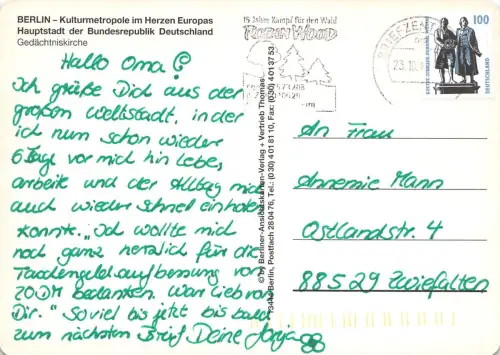 BERLIN – Kulturmetropole im Herzen Europas
Hauptstadt der Bundesrepublik Deutschland
Gedächtniskirche
Hallo Oma!
Ich grüße Dich aus der
großen Weltstadt, in der
ich nun schon wieder
6 Tage vor mich hin lebe,
arbeite und der Alltag mich
auch wieder schnell einholen
konnte. Ich wollte mich
noch ganz herzlich für die
Taschengeldaufbesserung von
20 DM bedanken. War lieb von
Dir. So viel bis jetzt bis bald
zum nächsten Brief Deine
15 Jahre Kampf für den Wald
ROBIN WOOD
BRIEFZEN
23.10.
100
DEUTSCHLAND
© by Berliner-Ansichtskarten-Verlag + Vertrieb Thomas
Berlin, Postfach 280476, Tel.: (030) 4018110, Fax: (030) 4013753
An Frau
Annemie Mann
Ostlandstr. 4
88529 Zwiefalten